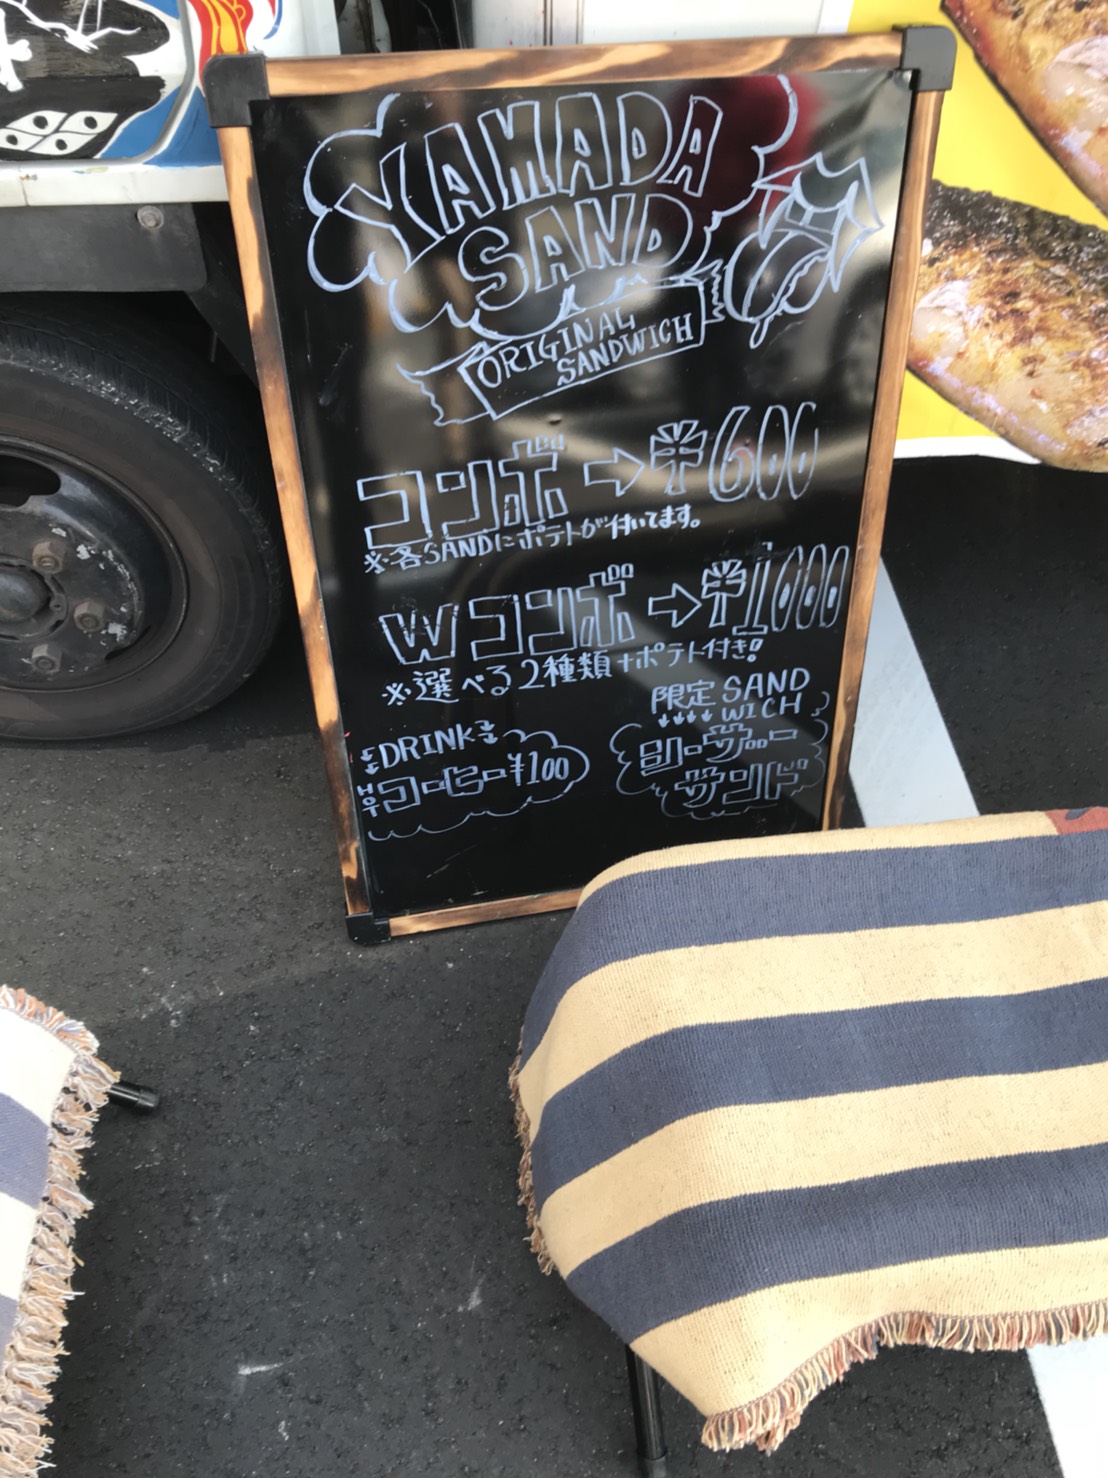 YAMADA
SAND
ORIGINAL
SANDWICH
コンボ→¥600
※各SANDにポテトが付いてます。
Wコンボ→¥1000
※選べる2種類+ポテト付き!
限定SAND
WICH
DRINK
HOTコーヒー¥100
シーザー
サンド